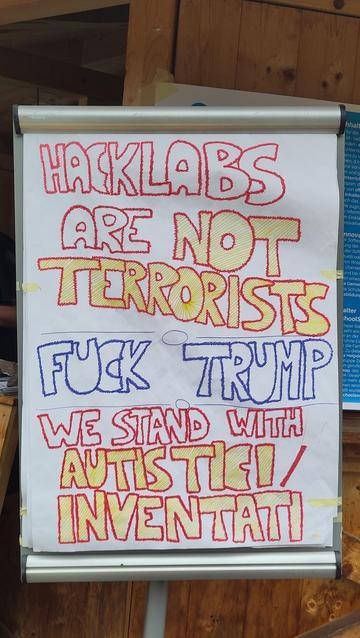 HACKLABS
ARE NOT
TERRORISTS
FUCK TRUMP
WE STAND WITH
AUTISTICI/
INVENTATI